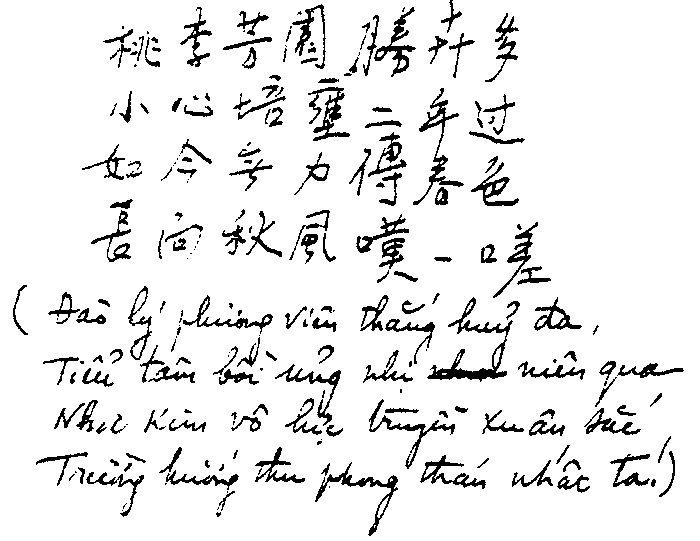 桃李芳園勝卉多
小心培壅二年过
如今無力傳春色
長向秋風嘆一嗟
(Đào lý phương viên thắng huỷ đa,
Tiểu tâm bồi ủng nhị niên qua
Như kim vô lực truyền xuân sắc
Trường hướng thu phong thán nhất ta!)